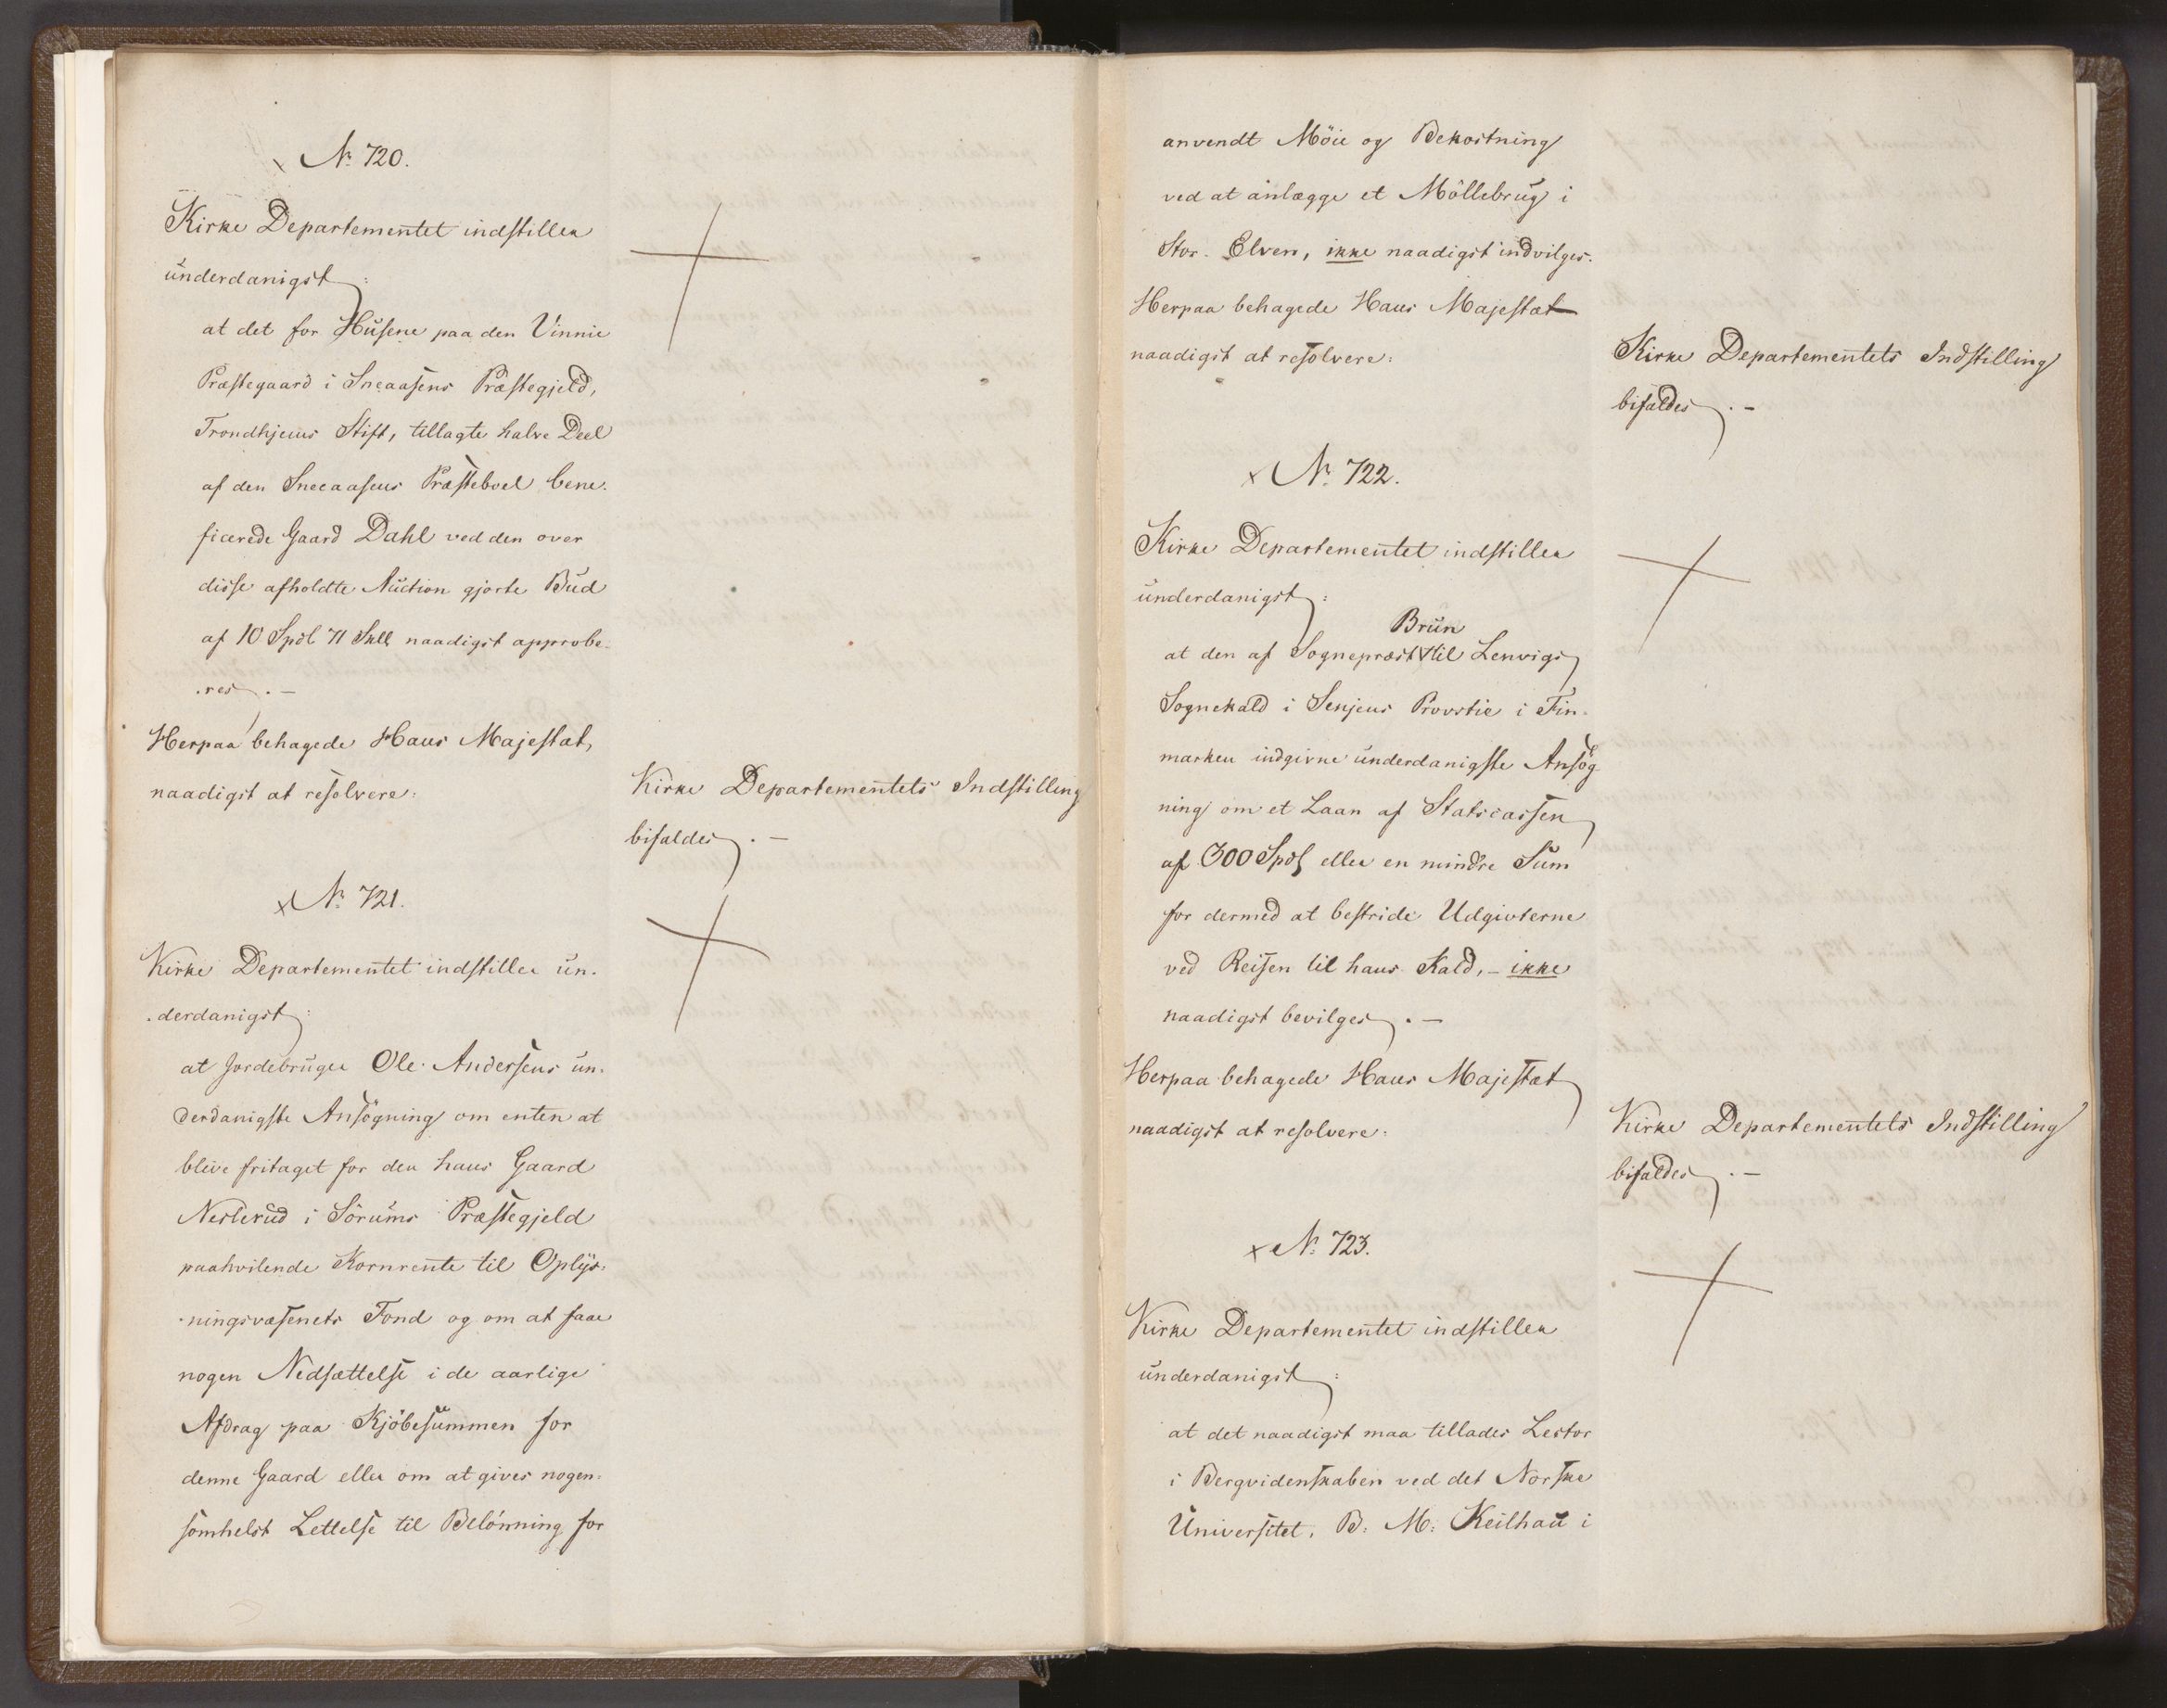 № 720.
Kirke Departementet indstiller
underdanigst:
at det for Husene paa den Vinnie
Præstegaard i Sneaasens Præstegjeld,
Trondhjems Stift, tillagte halve Deel
af den Sneeaasens Præsteboel bene-
ficerede Gaard Dahl ved den over
disse afholdte Auction gjorte Bud
af 10 Spdl 71 Skll naadigst approbe-
-res.-
Herpaa behagede Hans Majestæt,
naadigst at resolvere:
Kirke Departementets Indstilling
bifaldes.-
№ 721.
Kirke Departementet indstiller un-
-derdanigst:
at Jordebruger Ole Andersens un-
derdanigste Ansøgning om enten at
blive fritaget for den hans Gaard
Nerlerud i Sørums Præstegjeld
paahvilende Kornrente til Oplys-
-ningsvæsenets Fond og om at faae
nogen Nedsættelse i de aarlige
Afdrag paa Kjøbesummen for
denne Gaard eller om at gives nogen-
somhelst Lettelse til Belønning for
anvendt Møie og Bekostning
ved at anlægge et Møllebrug i
Stor-Elven, ikke naadigst indvilges.
Herpaa behagede Hans Majestæt
naadigst at resolvere:
Kirke Departementets Indstilling
bifaldes.-
№ 722.
Kirke Departementet indstiller
underdanigst:
Brun
at den af Sognepræst til Lenvigs
Sognekald i Senjens Provstie i Fin-
marken indgivne underdanigste Ansøg-
ning om et Laan af Statscassen
af 300 Spdl eller en mindre Sum
for dermed at bestride Udgivterne
ved Reisen til hans Kald, - ikke
naadigst bevilges.-
Herpaa behagede Hans Majestæt
naadigst at resolvere:
Kirke Departementets Indstilling
bifaldes.-
№ 723.
Kirke Departementet indstiller
underdanigst:
at det naadigst maa tillades Lector
i Bergvidenskaben ved det Norske
Universitet, B: M: Keilhau i